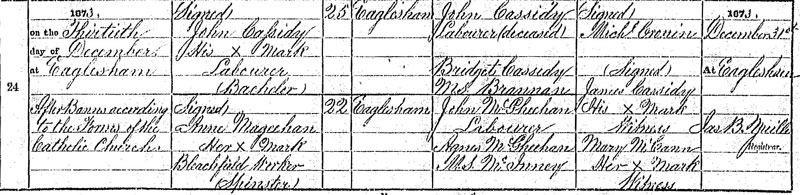 1873,
on the Thirtieth
day of December
at Eaglesham
24
After Banns according
to the Forms of the
Catholic Church
(Signed)
John Cassidy
His x Mark
Labourer
(Bachelor)
(Signed)
Anne Mageehan
Her x Mark
Bleachfield Worker
(Spinster)
25
22
Eaglesham
Eaglesham
John Cassidy
Labourer (deceased)
Bridget Cassidy
M.S. Brannan
John McGheehan
Labourer
Agnes McGheehan
M.S. McInney
(Signed)
Michl.
(Signed)
James Cassidy
His x Mark
Witness
Mary McCann
Her x Mark
Witness
1873,
December 31st
At Eaglesham
Jas B. Neill
Registrar.